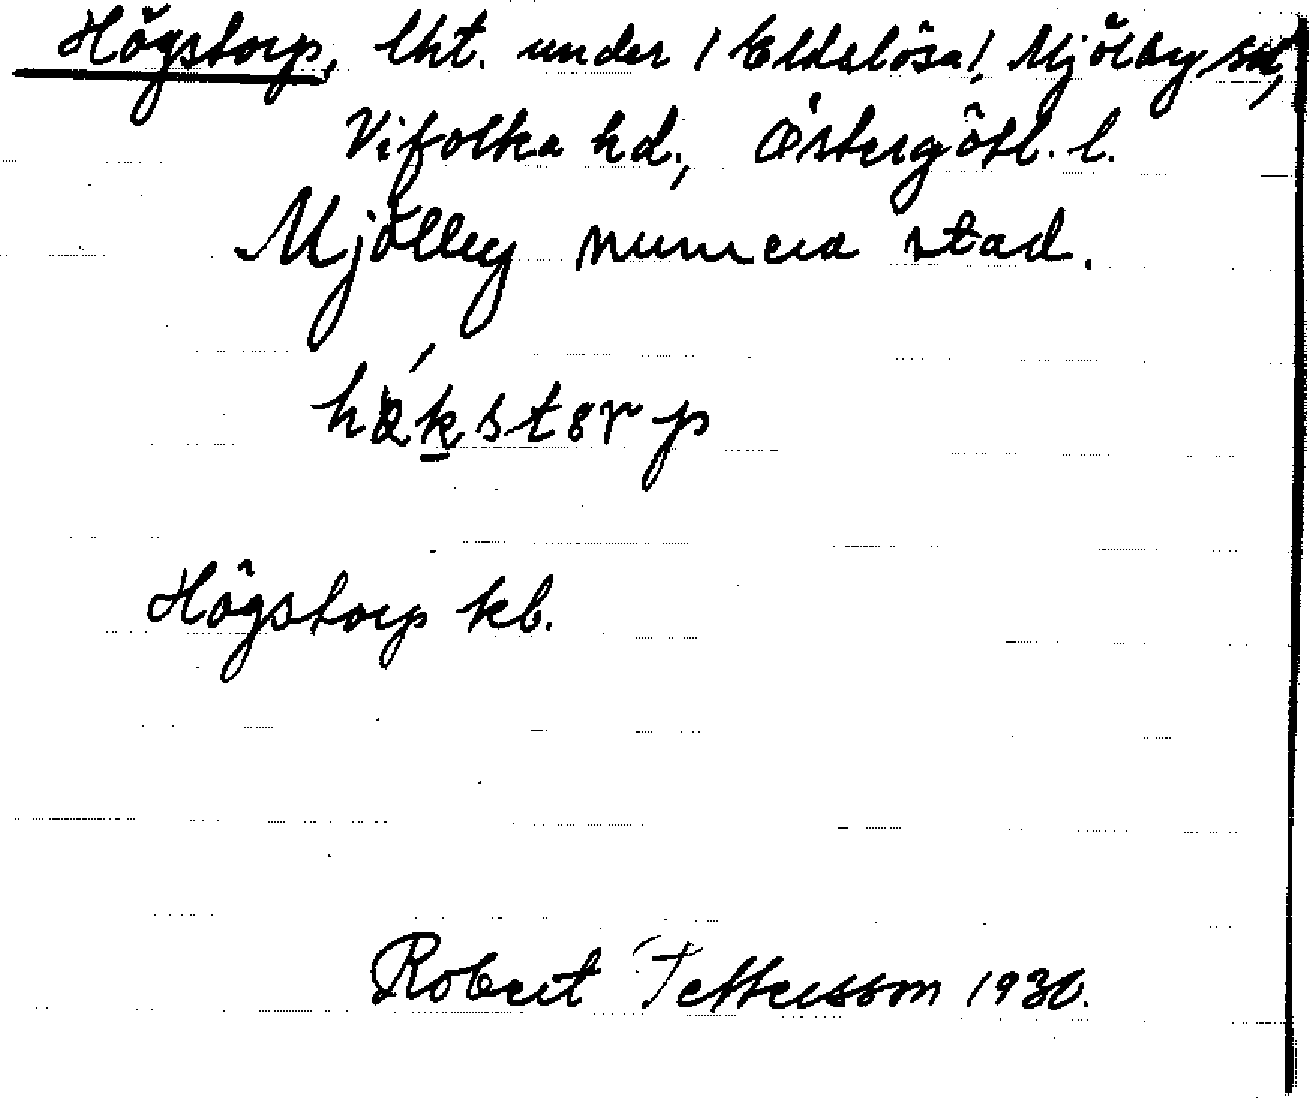 Högstorp, lht. under /Eldslösa/, Mjölby sn,
Vifolka hd., Östergötl. l.
Mjölby numera stad.
hö́kstorp
Högstorp kb.
Robert Pettersson 1930.